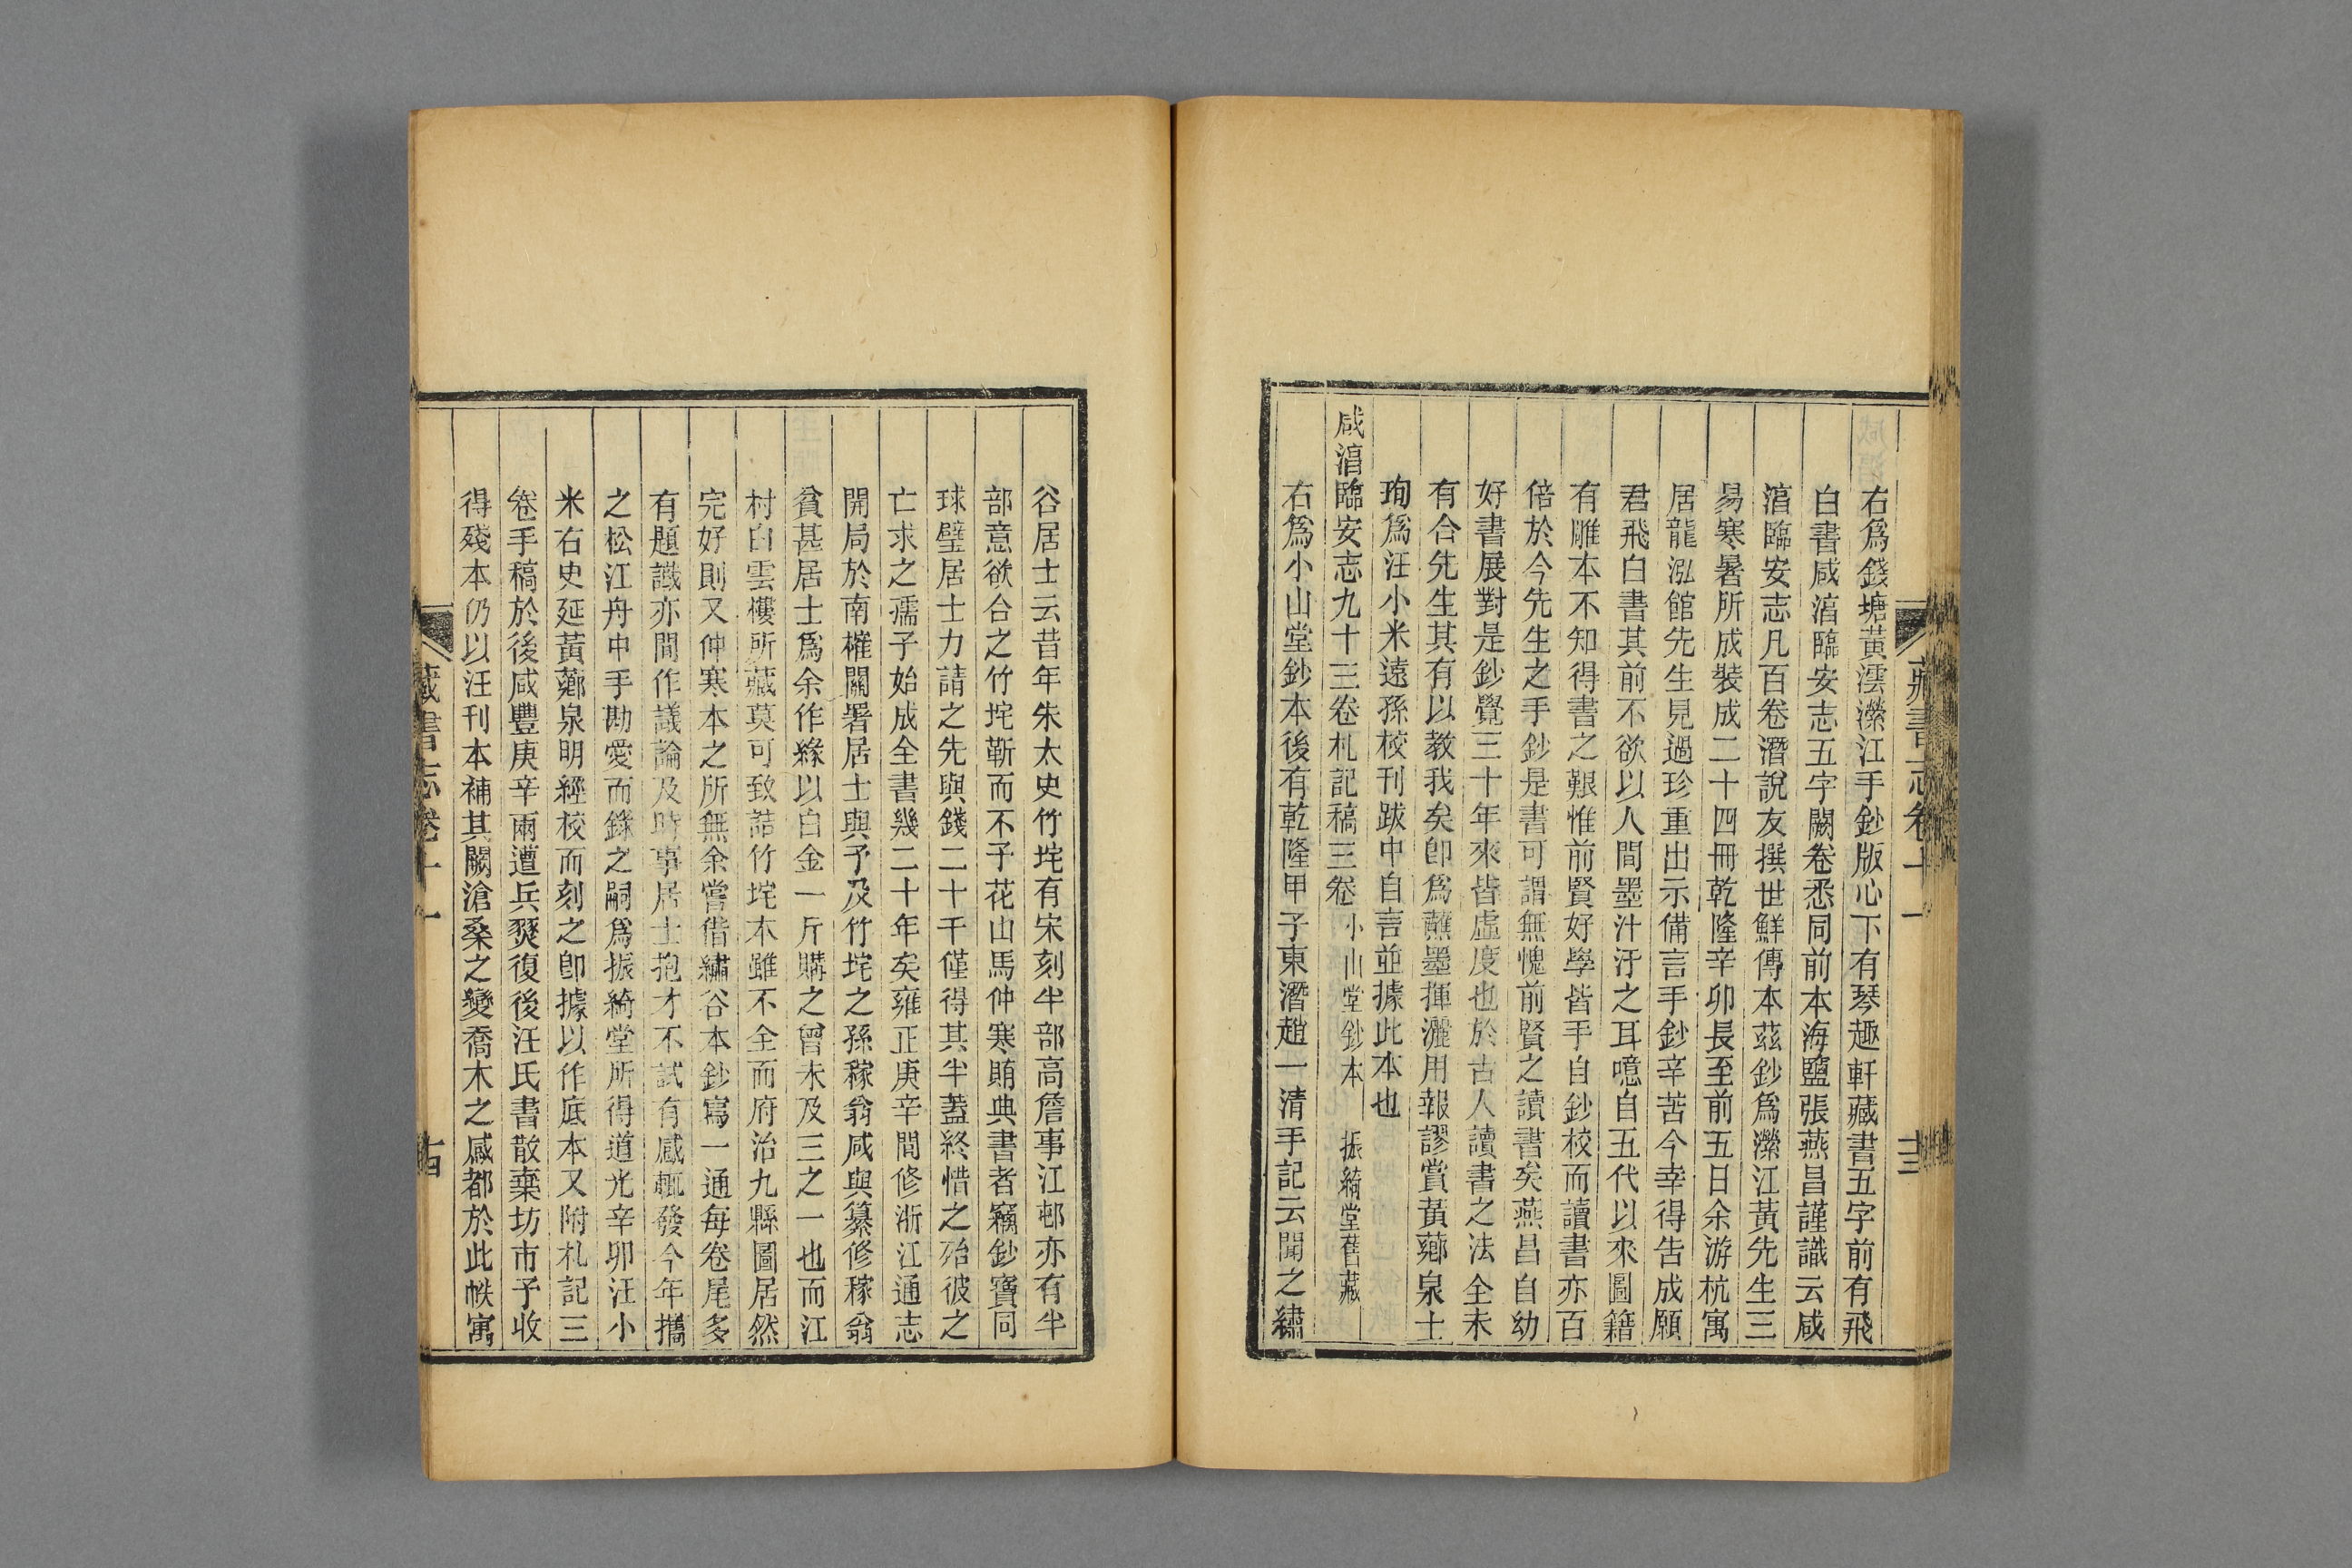 右爲錢塘黃澐濴江手鈔版心下有琴趣軒藏書五字前有飛
白書咸湻臨安志五字闕卷悉同前本海鹽張燕昌謹識云咸
湻臨安志凡百卷潛說友撰世鮮傳本茲鈔爲濴江黃先生三
易寒暑所成裝成二十四冊乾隆辛卯長至前五日余游杭寓
居龍泓館先生見過珍重出示備言手鈔辛苦今幸得告成願
君飛白書其前不欲以人間墨汁汙之耳噫自五代以來圖籍
有雕本不知得書之艱惟前賢好學皆手自鈔校而讀書亦百
倍於今先生之手鈔是書可謂無愧前賢之讀書矣燕昌自幼
好書展對是鈔覺三十年來皆虛度也於古人讀書之法全未
有合先生其有以教我矣卽爲蘸墨揮灑用報謬賞黃薌泉士
珣爲汪小米遠孫校刊跋中自言並據此本也
咸湻臨安志九十三卷札記稿三卷 小山堂鈔本 振綺堂舊藏
右爲小山堂鈔本後有乾隆甲子東潛趙一清手記云聞之繡
藏書志卷十一 十三
谷居士云昔年朱太史竹垞有宋刻半部高詹事江邨亦有半
部意欲合之竹垞靳而不予花山馬仲寒賄典書者竊鈔寶同
球璧居士力請之先與錢二十千僅得其半葢終惜之殆彼之
亡求之孺子始成全書幾二十年矣雍正庚辛間修浙江通志
開局於南榷關署居士與予及竹垞之孫稼翁咸與纂修稼翁
貧甚居士爲余作緣以白金一斤購之曾未及三之一也而江
村白雲樓所藏莫可致詰竹垞本雖不全而府治九縣圖居然
完好則又仲寒本之所無余嘗借繡谷本鈔寫一通每卷尾多
有題識亦間作議論及時事居士抱才不試有感輒發今年攜
之松江舟中手勘愛而錄之嗣爲振綺堂所得道光辛卯汪小
米右史延黃薌泉明經校而刻之卽據以作底本又附札記三
卷手稿於後咸豐庚辛兩遭兵燹復後汪氏書散棄坊市予收
得殘本仍以汪刊本補其闕滄桑之變喬木之感都於此帙寓
藏書志卷十一 十四